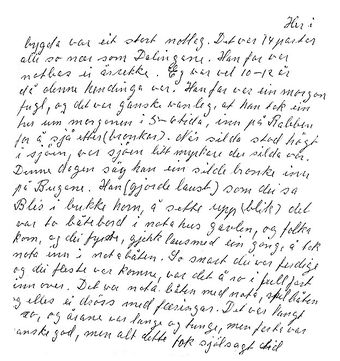 Her i
bygda var eit stort notlag. Det var 14 parter
alle so nær som Dalingane. Han far var
notbas ei årrekke. Eg var vel 10-12 år
då denne hendinga var. Han far var ein morgon
fugl, og det var ganske vanleg, at han tok ein
tur um morgonen i 5- tida, inn på Nabben
for å sjå etter (bronkar). Når silda stod högt
i sjöen, var sjöen litt myrkare der silda var.
Denne dagen såg han ein silde bronke inne
på Bugane. Han (gjorde laust) som dei sa
Blés i bukke horn, å sette upp (blik) det
var to båtebord i nota hus gavlen, og folka
kom, og dei fyrste, gjekk laus med ein gong, å tok
nota inn i notabåten. So snart dei var ferdige
og dei fleste var komne, var det å ro i full fart
inn over. Det var nota båten med nota, spelbåten
og elles ei dröss med færingar. Det var langt
å ro, og årane var lange og tunge, men farti var
ganske god, men alt dette tok sjölsagt tid